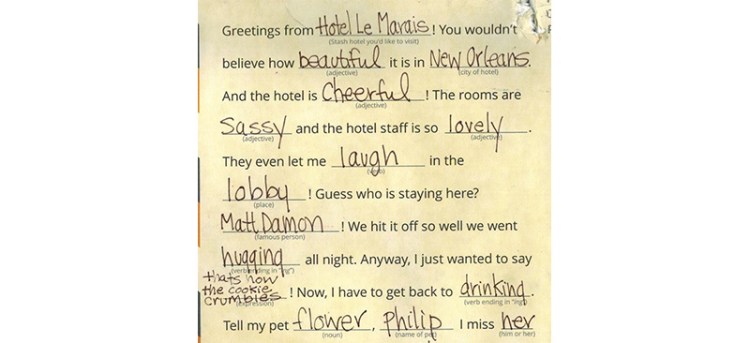 Greetings from Hotel Le Marais! You wouldn't
(Stash hotel you'd like to visit)
believe how beautiful it is in New Orleans.
(adjective) (city of hotel)
And the hotel is cheerful! The rooms are
(adjective)
sassy and the hotel staff is so lovely.
(adjective) (adjective)
They even let me laugh in the
(verb)
lobby! Guess who is staying here?
(place)
Matt Damon! We hit it off so well we went
(famous person)
hugging all night. Anyway, I just wanted to say
(verb ending in "ing")
thats how
the cookie
crumbles! Now, I have to get back to drinking.
(expression) (verb ending in "ing")
Tell my pet flower, Philip I miss her
(noun) (name of pet) (him or her)